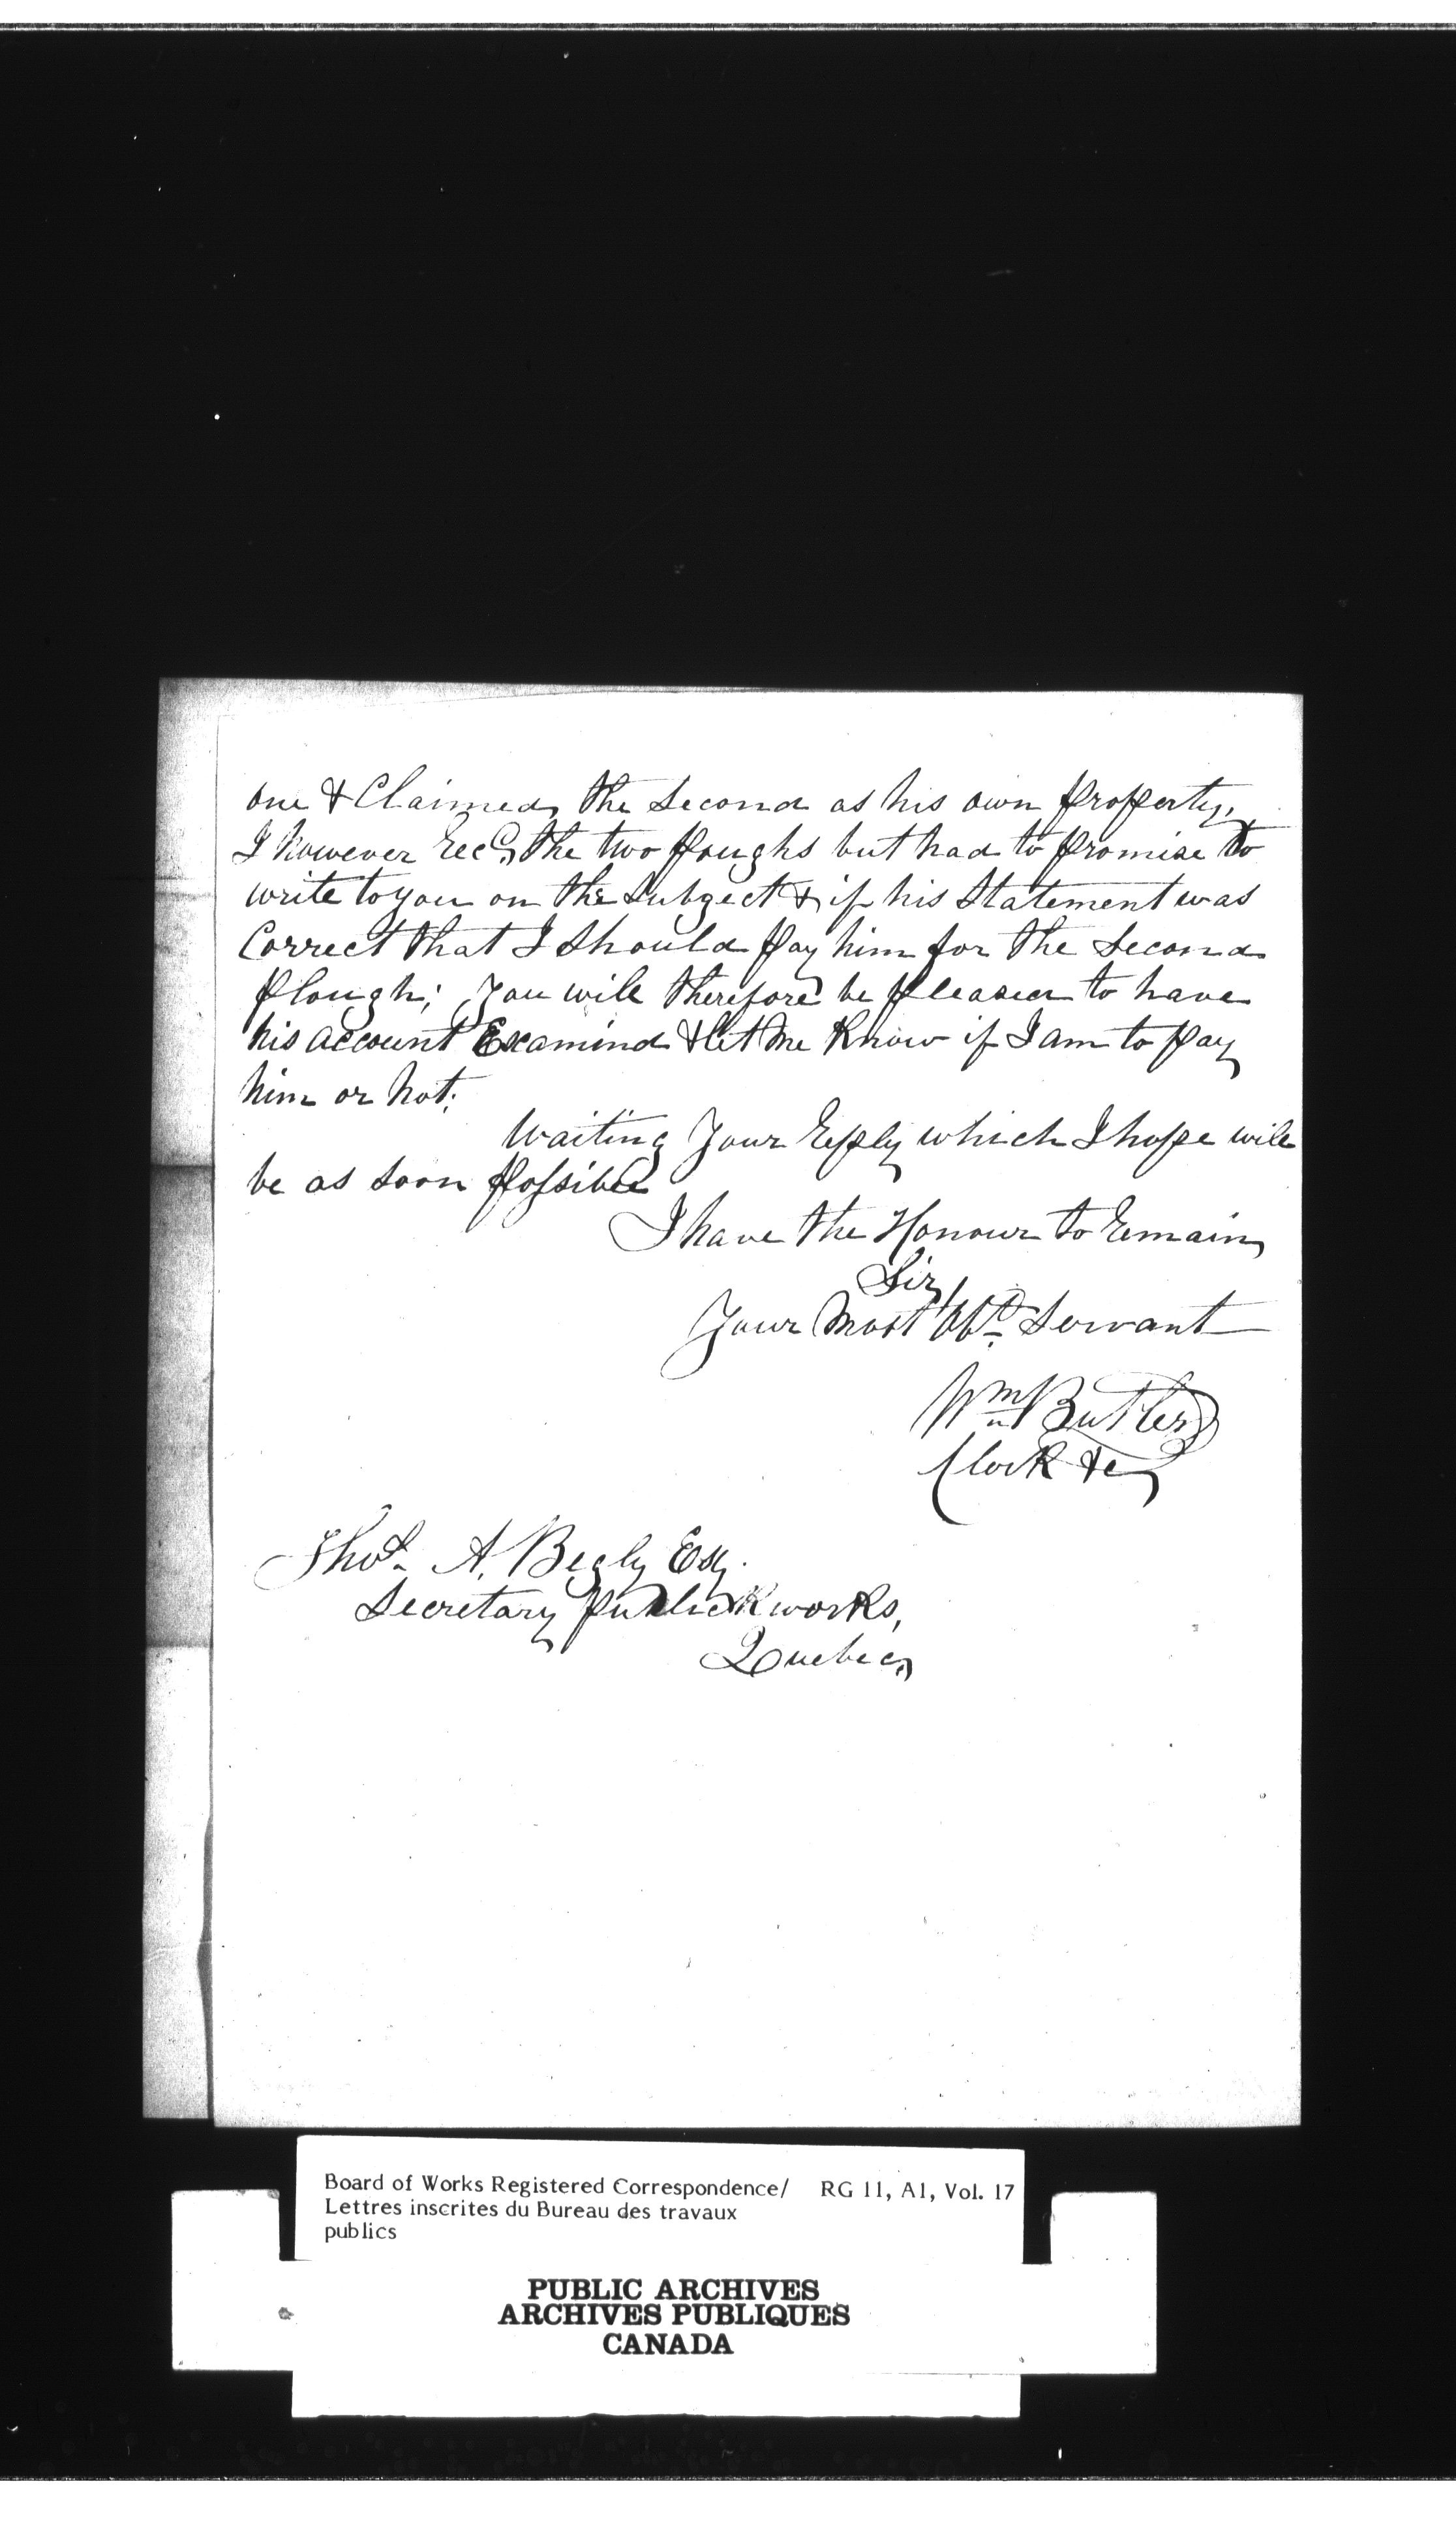 one & Claimed, the Second as his own property,
I however recd the two ploughs but had to promise to
write to you on the Subject & if his Statement was
Correct that I Should pay him for the Second
plough; You will therefore be pleased to have
his account Examind & let me Know if I am to pay
him or not;
Waiting Your reply which I hope will
be as soon possible
I have the Honour to remain,
Sir,
Your Most Obt Servant
Wm Butler
Clerk &c
Thos A. Begly Esq.
Secretary publick works,
Quebec,
Board of Works Registered Correspondence/ RG 11, A1, Vol. 17
Lettres inscrites du Bureau des travaux
publics
PUBLIC ARCHIVES
ARCHIVES PUBLIQUES
CANADA